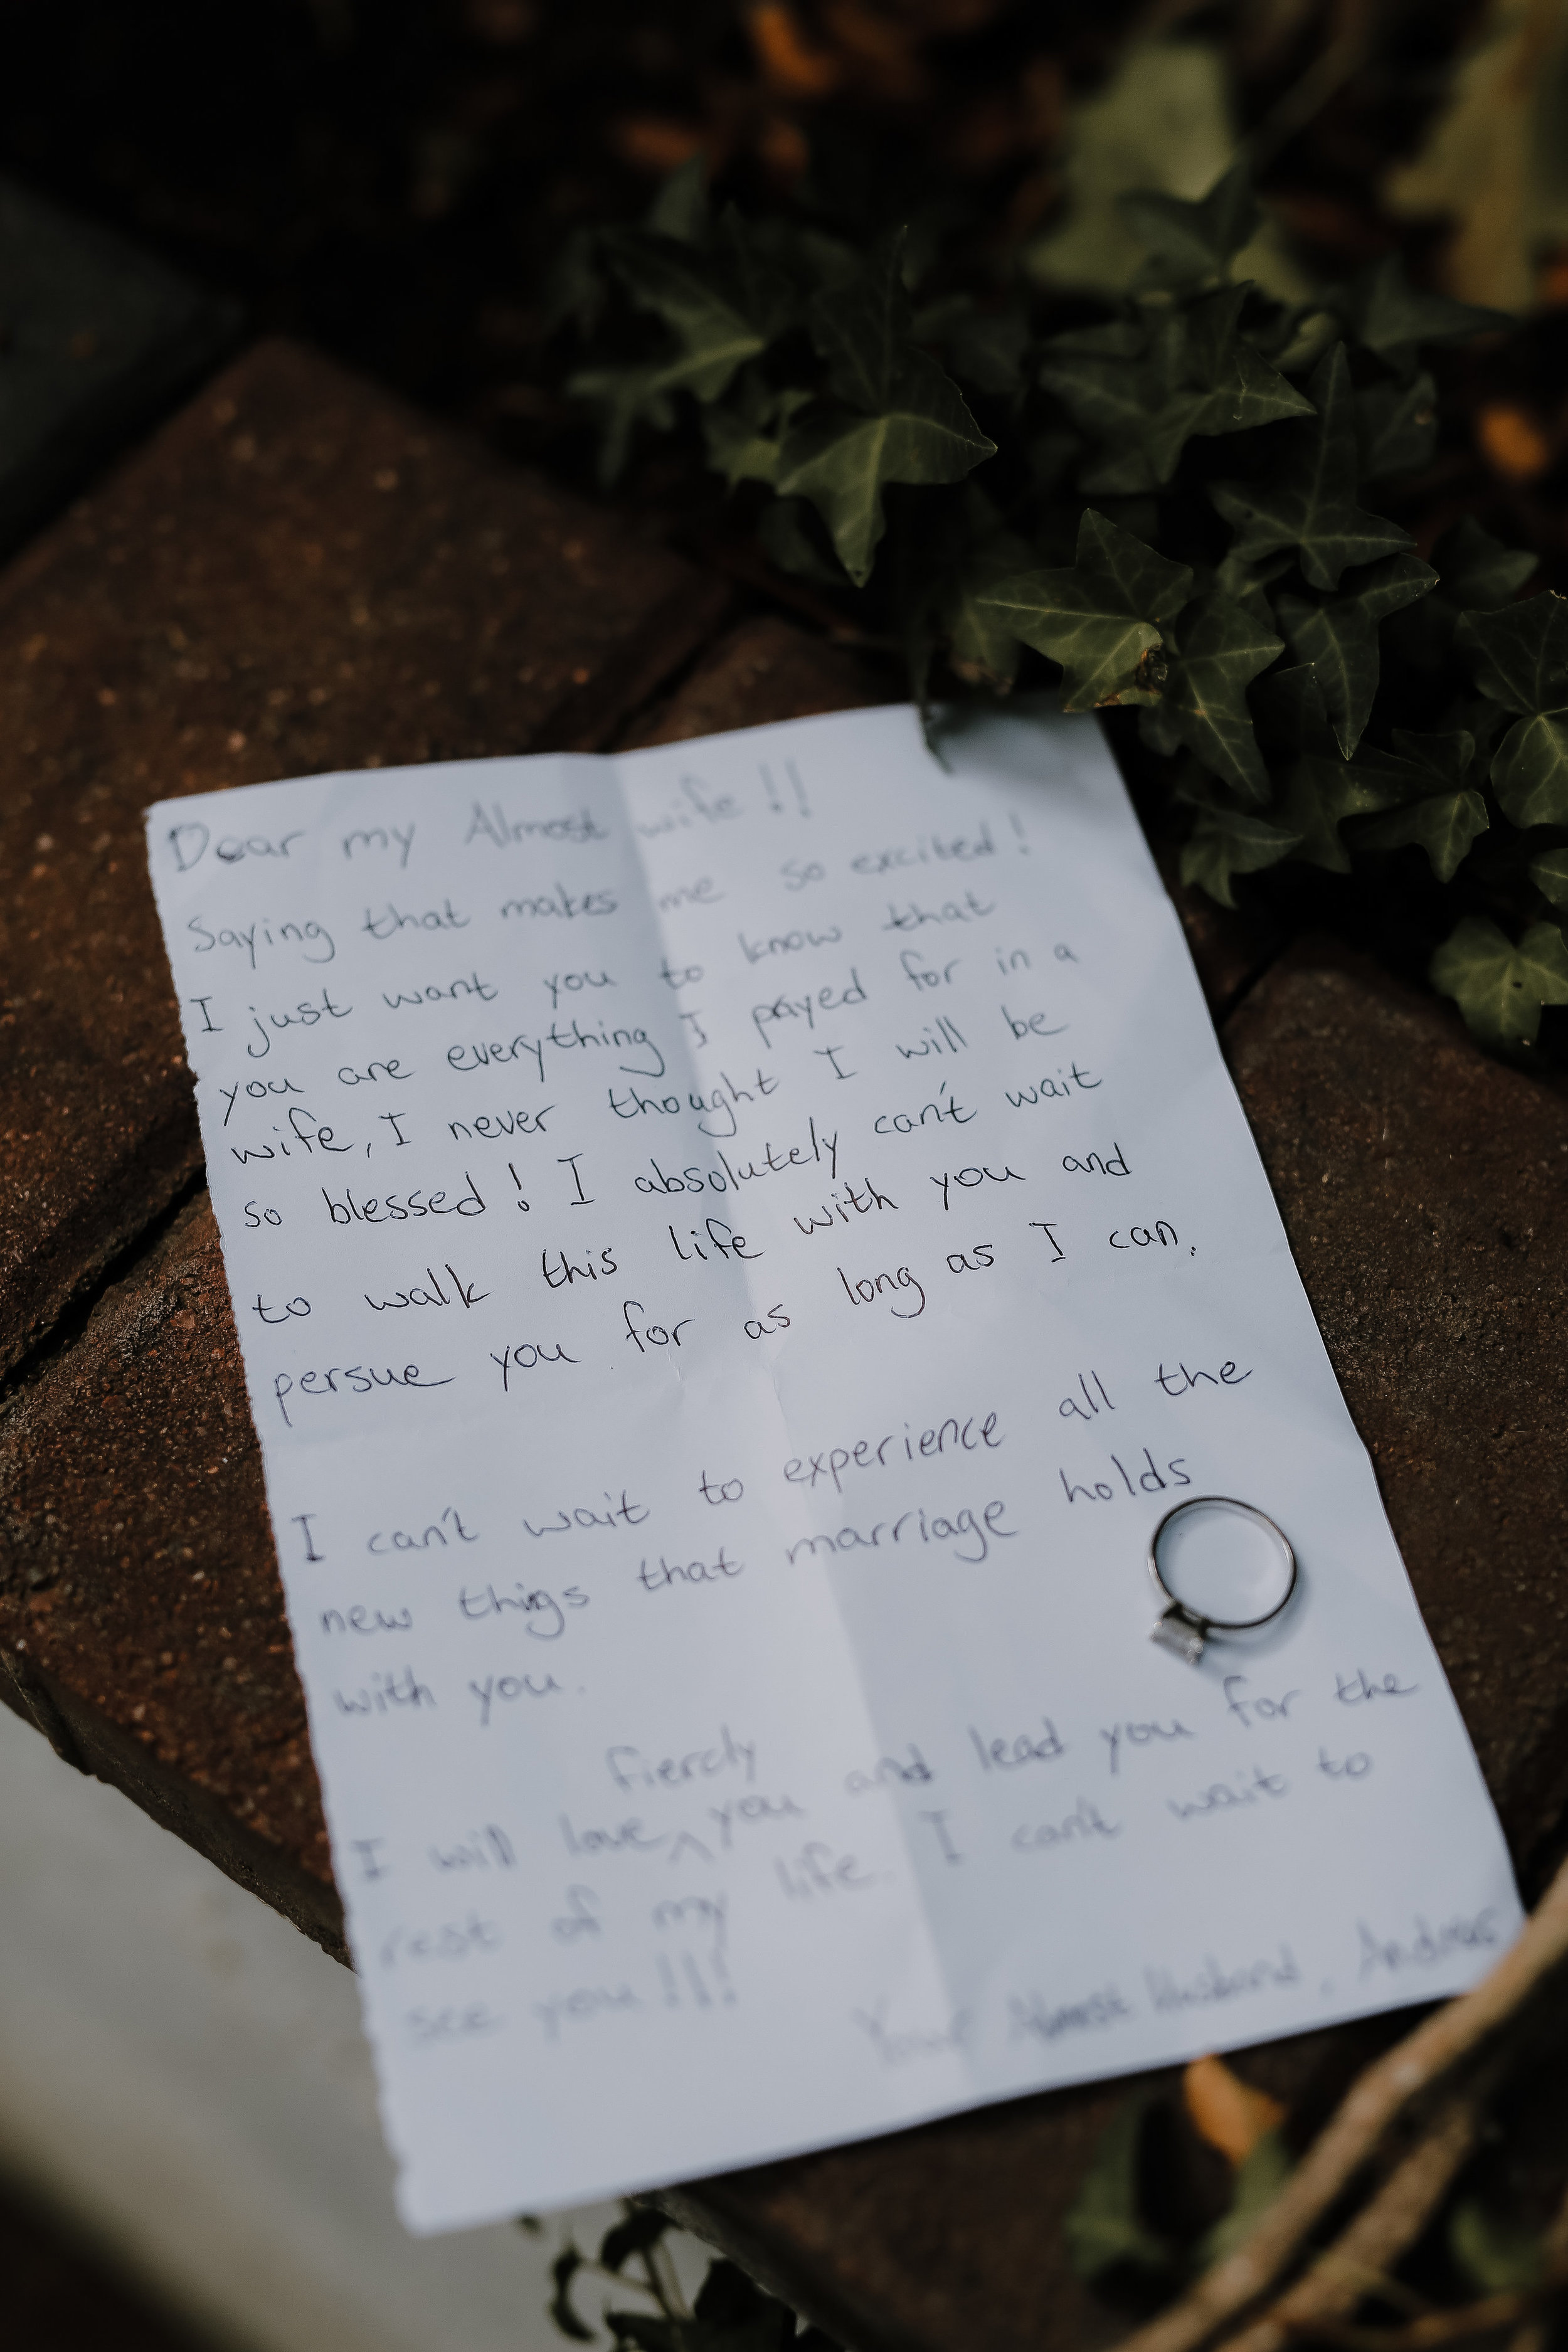 Dear my Almost wife!!
Saying that makes me so excited!
I just want you to know that
you are everything I prayed for in a
wife, I never thought I will be
so blessed! I absolutely can't wait
to walk this life with you and
persue you for as long as I can.
I can't wait to experience all the
new things that marriage holds
with you.
fiercly
I will love ^ you and lead you for the
rest of my life. I can't wait to
see you!!!
Your Almost Husband, Andries